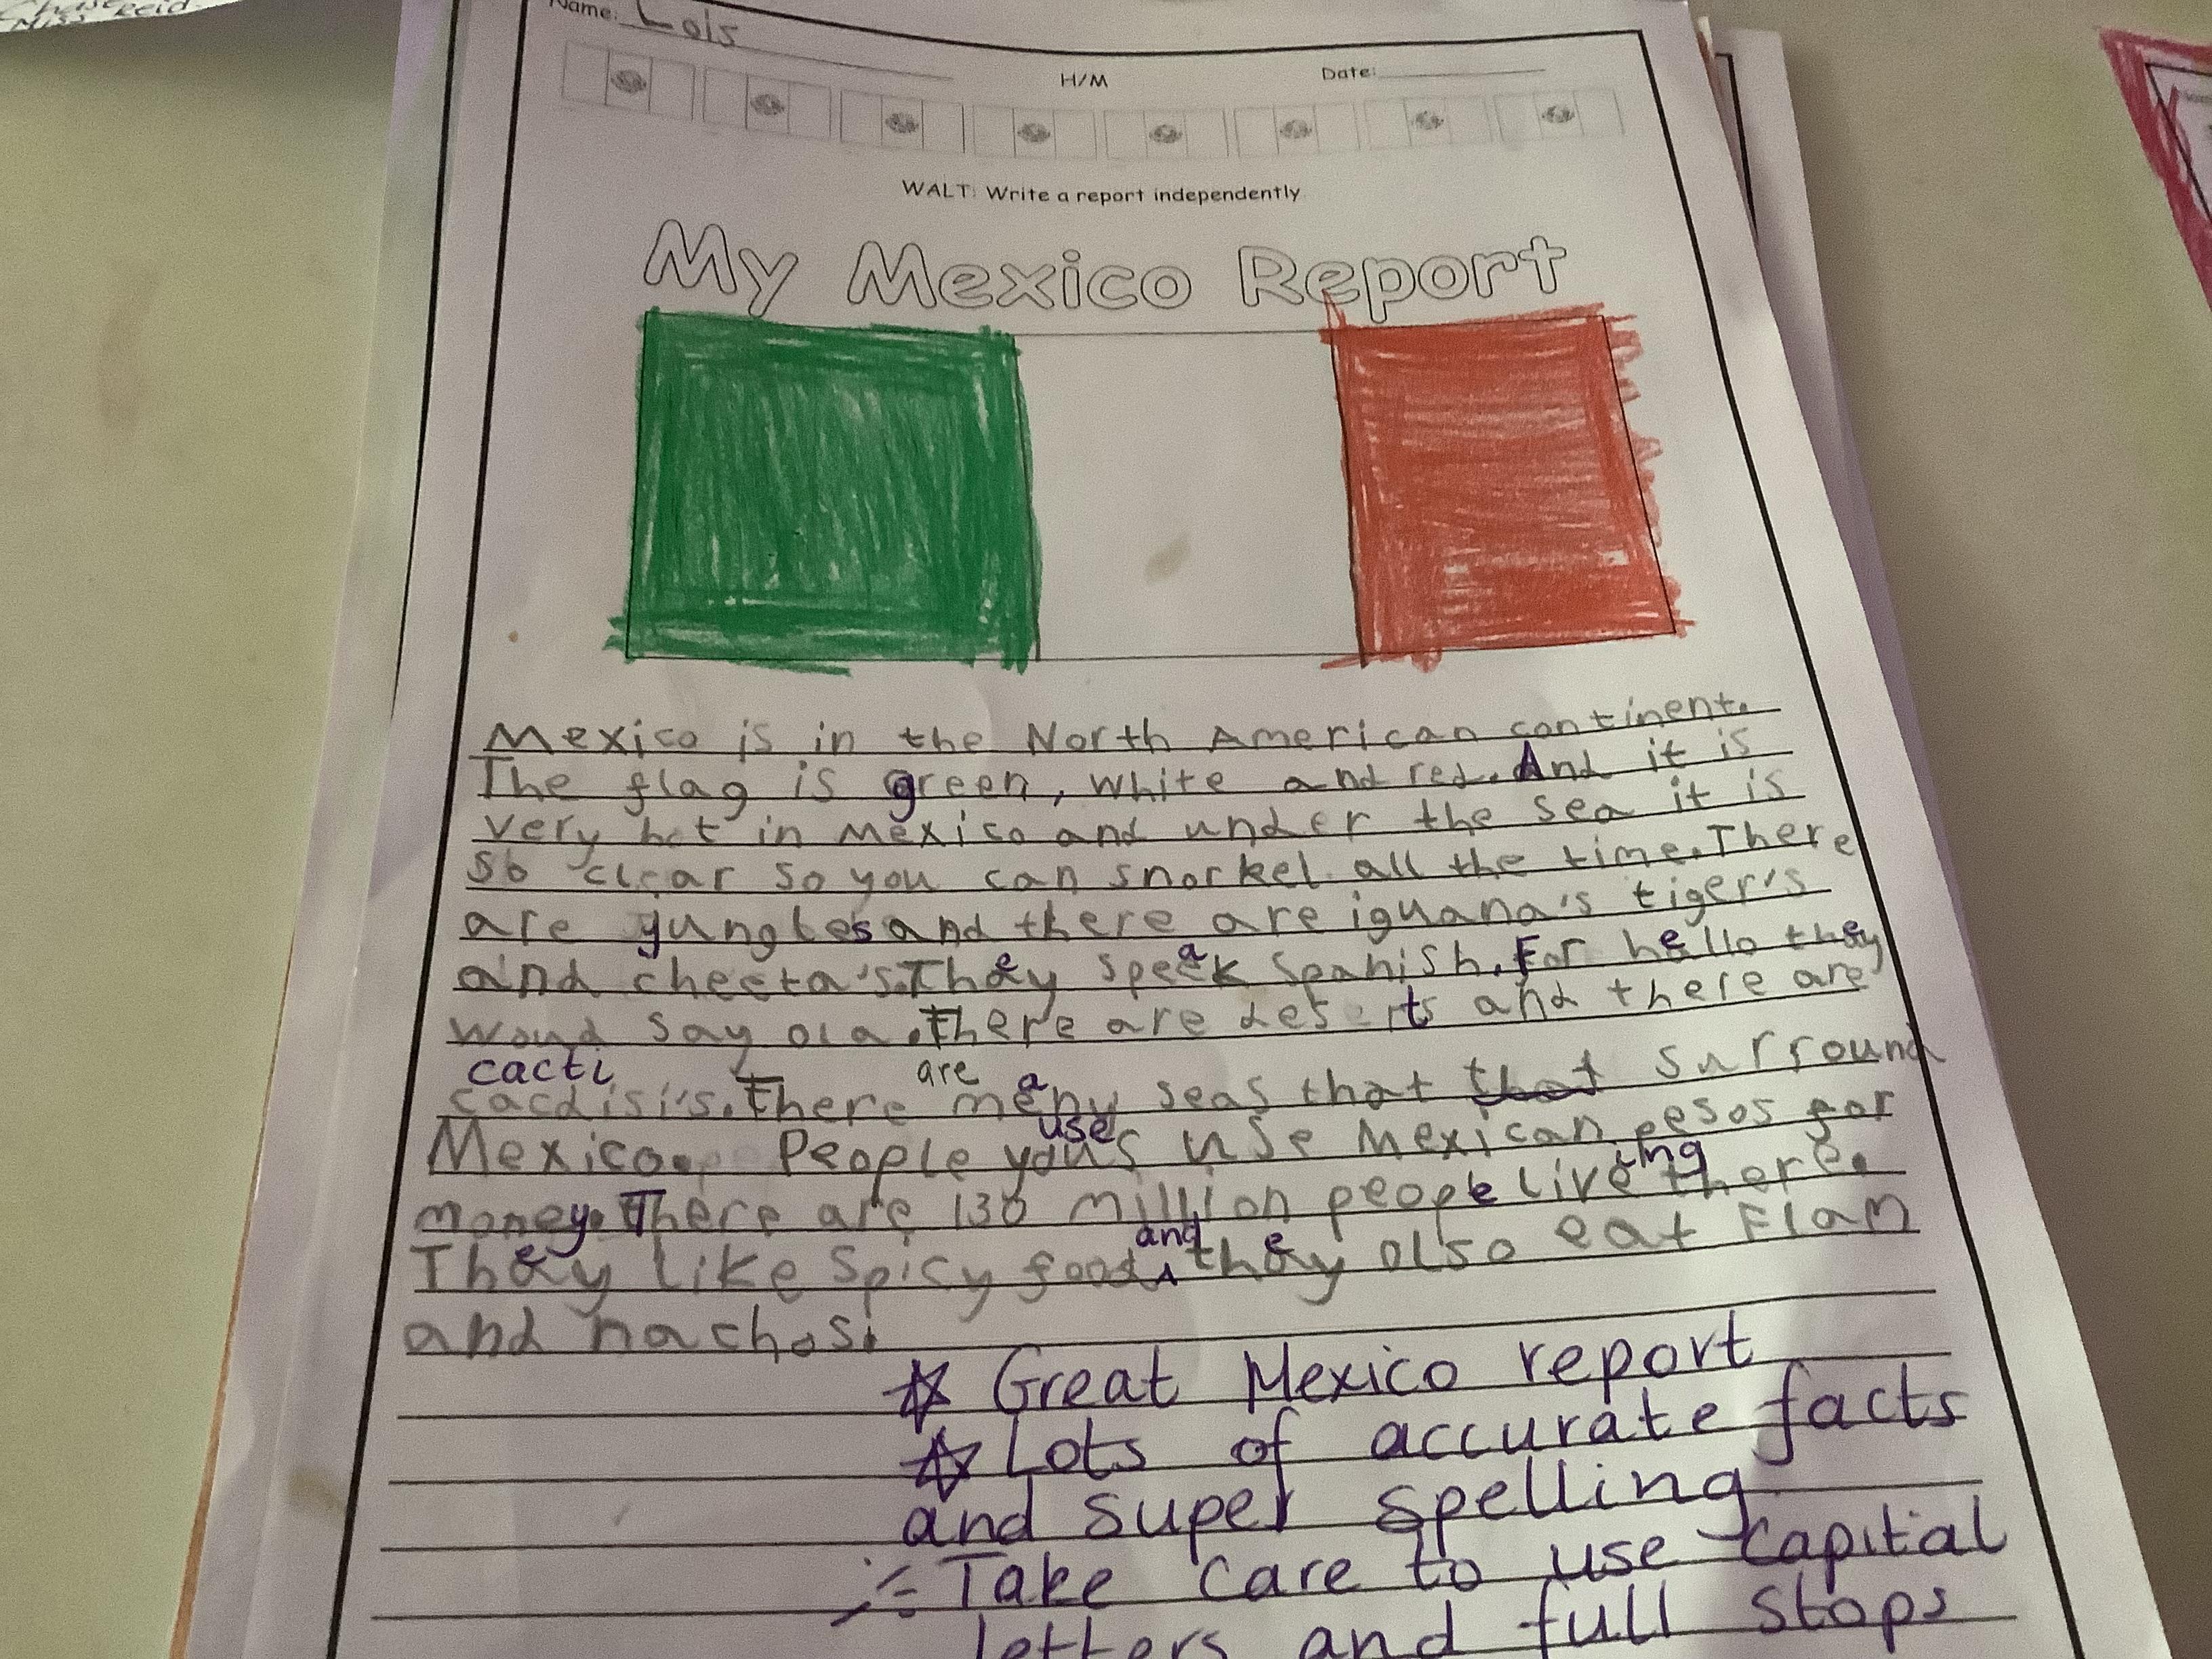 Miss Reid.
Name: Lois
H/M
Date:
WALT: Write a report independently.
My Mexico Report
Mexico is in the North American continent.
The flag is green, white and red. And it is
very hot in mexico and under the sea it is
so clear so you can snorkel all the time. There
are jungles and there are iguana's tiger's
and cheeta's. They speak Spanish. For hello they
woud say ola. There are deserts and there are
cacti are
cacdisis's. There many seas that that surround
use
Mexico. People yous use Mexican pesos for
ing
money. There are 130 million people live there.
and
They like Spicy food they also eat Flan
and nachos.
Great Mexico report
Lots of accurate facts
and super spelling
Take care to use capital
letters and full stops